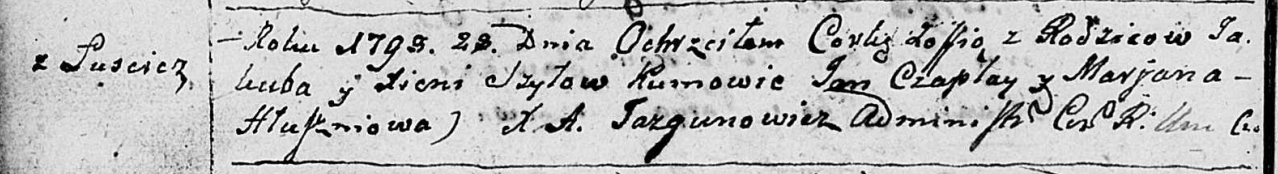 z Puscicz
– Roku 1798. 28. Dnia Ochrzciłem Corkę Zoffią z Rodzicow Ja.
kuba y Xieni Szyłow Kumowie Jan Czaplay y Marjana –
Hłuszniowa) X A. Jazgunowicz Administr Cer R: